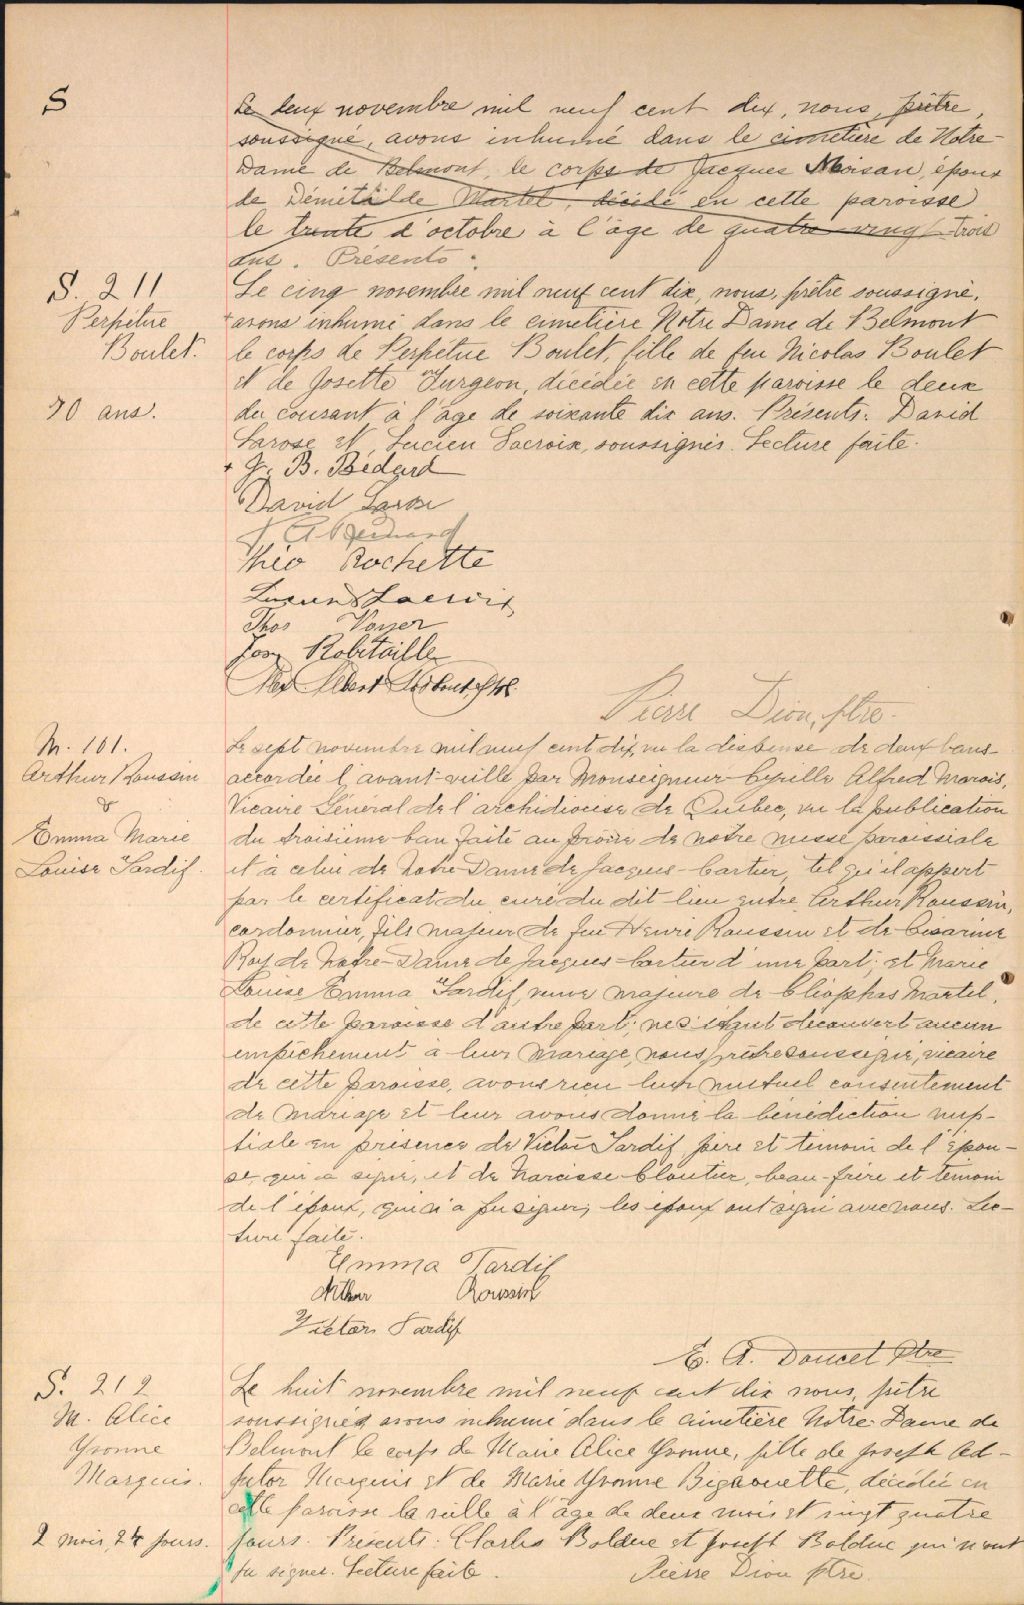 S
Le deux novembre mil neuf cent dix, nous, prêtre,
soussigné, avons inhumé dans le cimetière de Notre-
Dame de Belmont, le corps de Jacques Moisan, époux
de Démétilde Martel, décédé en cette paroisse
le trente d'octobre à l'âge de quatre-vingt-trois
ans. Présents:
S. 211
Perpétue
Boulet.
70 ans.
Le cinq novembre mil neuf cent dix, nous, prêtre soussigné,
+ avons inhumé dans le cimetière Notre Dame de Belmont
le corps de Perpétue Boulet, fille de feu Nicolas Boulet
et de Josette Turgeon, décédée en cette paroisse le deux
du courant à l'âge de soixante dix ans. Présents: David
Larose et Lucien Lacroix, soussignés. Lecture faite.
+ J. B. Bédard
David Larose
J. A. Bédard
Théo Rochette
Lucien Lacroix
Thos Voyer
Jos Robitaille
Alex. Albert Godbout, Ptre.
Pierre Dion, ptre.
M. 101.
Arthur Roussin
&
Emma Marie
Louise Tardif.
Le sept novembre mil neuf cent dix, vu la dispense de deux bans
accordée l'avant-veille par Monseigneur Cyrille Alfred Marois,
Vicaire Général de l'archidiocèse de Québec, vu la publication
du troisième ban faite au prône de notre messe paroissiale
et à celui de Notre-Dame de Jacques-Cartier, tel qu'il appert
par le certificat du curé du dit lieu entre Arthur Roussin,
cordonnier, fils majeur de feu Henri Roussin et de Césarine
Roy de Notre-Dame de Jacques-Cartier d'une part; et Marie
Louise Emma Tardif, veuve majeure de Cléophas Martel,
de cette paroisse d'autre part; ne s'étant découvert aucun
empêchement à leur mariage, nous prêtre soussigné, vicaire
de cette paroisse, avons reçu leur mutuel consentement
de mariage et leur avons donné la bénédiction nup-
tiale en présence de Victor Tardif, père et témoin de l'épou-
se qui a signé, et de Narcisse Cloutier, beau-frère et témoin
de l'époux, qui n'a pu signer; les époux ont signé avec nous. Lec-
ture faite.
Emma Tardif
Arthur Roussin
Victor Tardif
E. A. Doucet Ptre
S. 212
M. Alice
Yvonne
Marquis.
2 mois, 24 jours.
Le huit novembre mil neuf cent dix nous, prêtre
soussigné avons inhumé dans le cimetière Notre-Dame de
Belmont le corps de Marie Alice Yvonne, fille de Joseph Ad-
jutor Marquis et de Marie Yvonne Bigaouette, décédée en
cette paroisse la veille à l'âge de deux mois et vingt quatre
jours. Présents: Charles Bolduc et Joseph Bolduc qui n'ont
pu signer. Lecture faite.
Pierre Dion ptre.